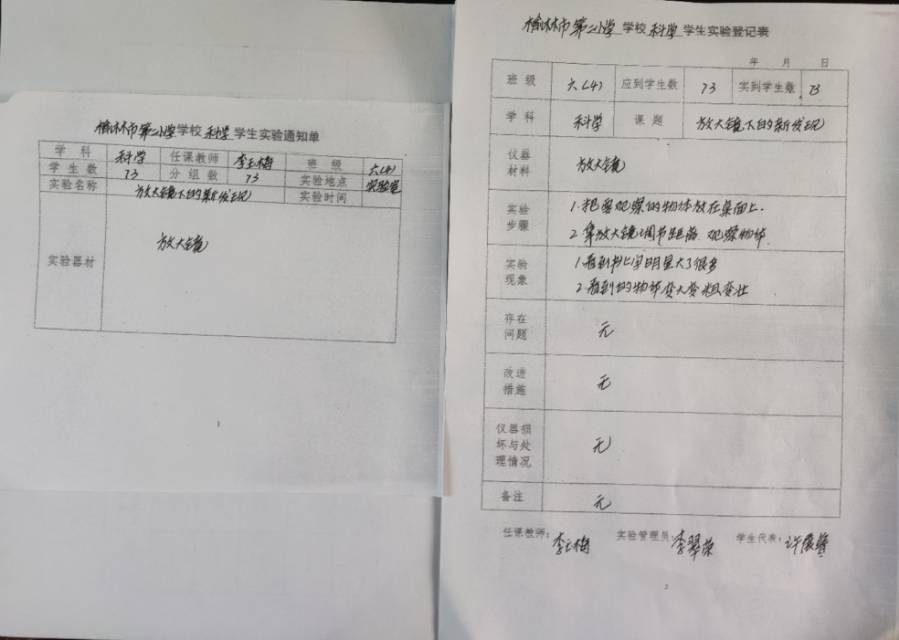 榆林市第二小学学校科学学生实验通知单
学科 科学 任课教师 李玉梅 班级 六(4)
学生数 73 分组数 73 实验地点 实验室
实验名称 放大镜下的新发现 实验时间
实验器材 放大镜
榆林市第二小学学校科学学生实验登记表
年 月 日
班级 六(4) 应到学生数 73 实到学生数 73
学科 科学 课题 放大镜下的新发现
仪器材料 放大镜
实验步骤 1.把要观察的物体放在桌面上.
2.拿放大镜调节距离 观察物体
实验现象 1.看到书上字明显大了很多
2.看到的物体变大变粗变壮
存在问题 无
改进措施 无
仪器损坏与处理情况 无
备注 无
任课教师: 李玉梅 实验管理员: 李翠荣 学生代表: 许